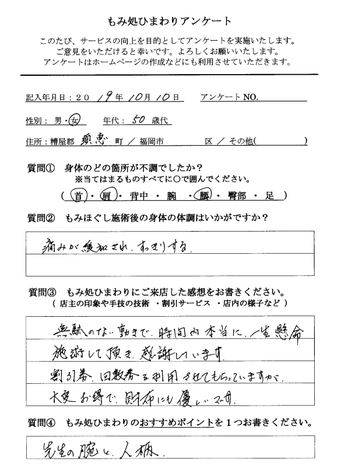 もみ処ひまわりアンケート
このたび、サービスの向上を目的としてアンケートを実施いたします。
ご意見をいただけると幸いです。よろしくお願いいたします。
アンケートはホームページの作成などにも利用させていただきます。
記入年月日:2019年10月10日 アンケートNO.
性別: 男・女 年代: 50歳代
住所: 糟屋郡 須恵 町 / 福岡市 区 / その他( )
質問① 身体のどの箇所が不調でしたか?
※当てはまるものすべてに○で囲んでください。
( 首・肩・背中・腕・腰・臀部・足 )
質問② もみほぐし施術後の身体の体調はいかがですか?
痛みが緩和され、すっきりする
質問③ もみ処ひまわりにご来店した感想をお書きください。
( 店主の印象や手技の技術 ・割引サービス ・店内の様子など )
無駄のない動きで、時間内本当に、一生懸命
施術して頂き、感謝しています。
割引券、回数券を利用させてもらっていますが、
大変お得で、財布にも優しいです。
質問④ もみ処ひまわりのおすすめポイントを1つお書きください。
先生の腕と、人柄。